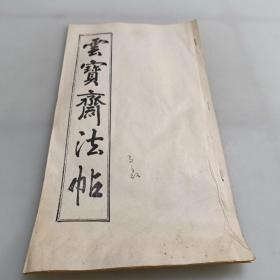 雲寶齋法帖